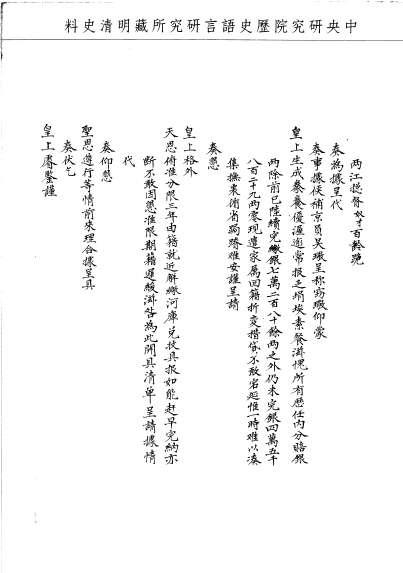 中央研究院歷史語言研究所藏明清史料
兩江總督奴才百齡跪
奏為據呈代
奏事據候補京員吳璥呈稱竊璥仰蒙
皇上生成豢養優渥逾常報乏涓埃素餐滋愧所有歷任內分賠銀
兩除前已陸續完繳銀七萬二百八十餘兩之外仍未完銀四萬五千
八百二十九兩零現遣家屬回籍折變措貸不敢宕延惟一時難以湊
集撫衷循省跼蹐難安謹呈請
奏懇
皇上格外
天恩俯准分限三年由籍就近解繳河庫兌收具報如能趕早完納亦
斷不敢因懇准限期藉遲緩滋咎為此開具清單呈請據情
代
奏仰懇
聖恩遵行等情前來理合據呈具
奏伏乞
皇上睿鑒謹